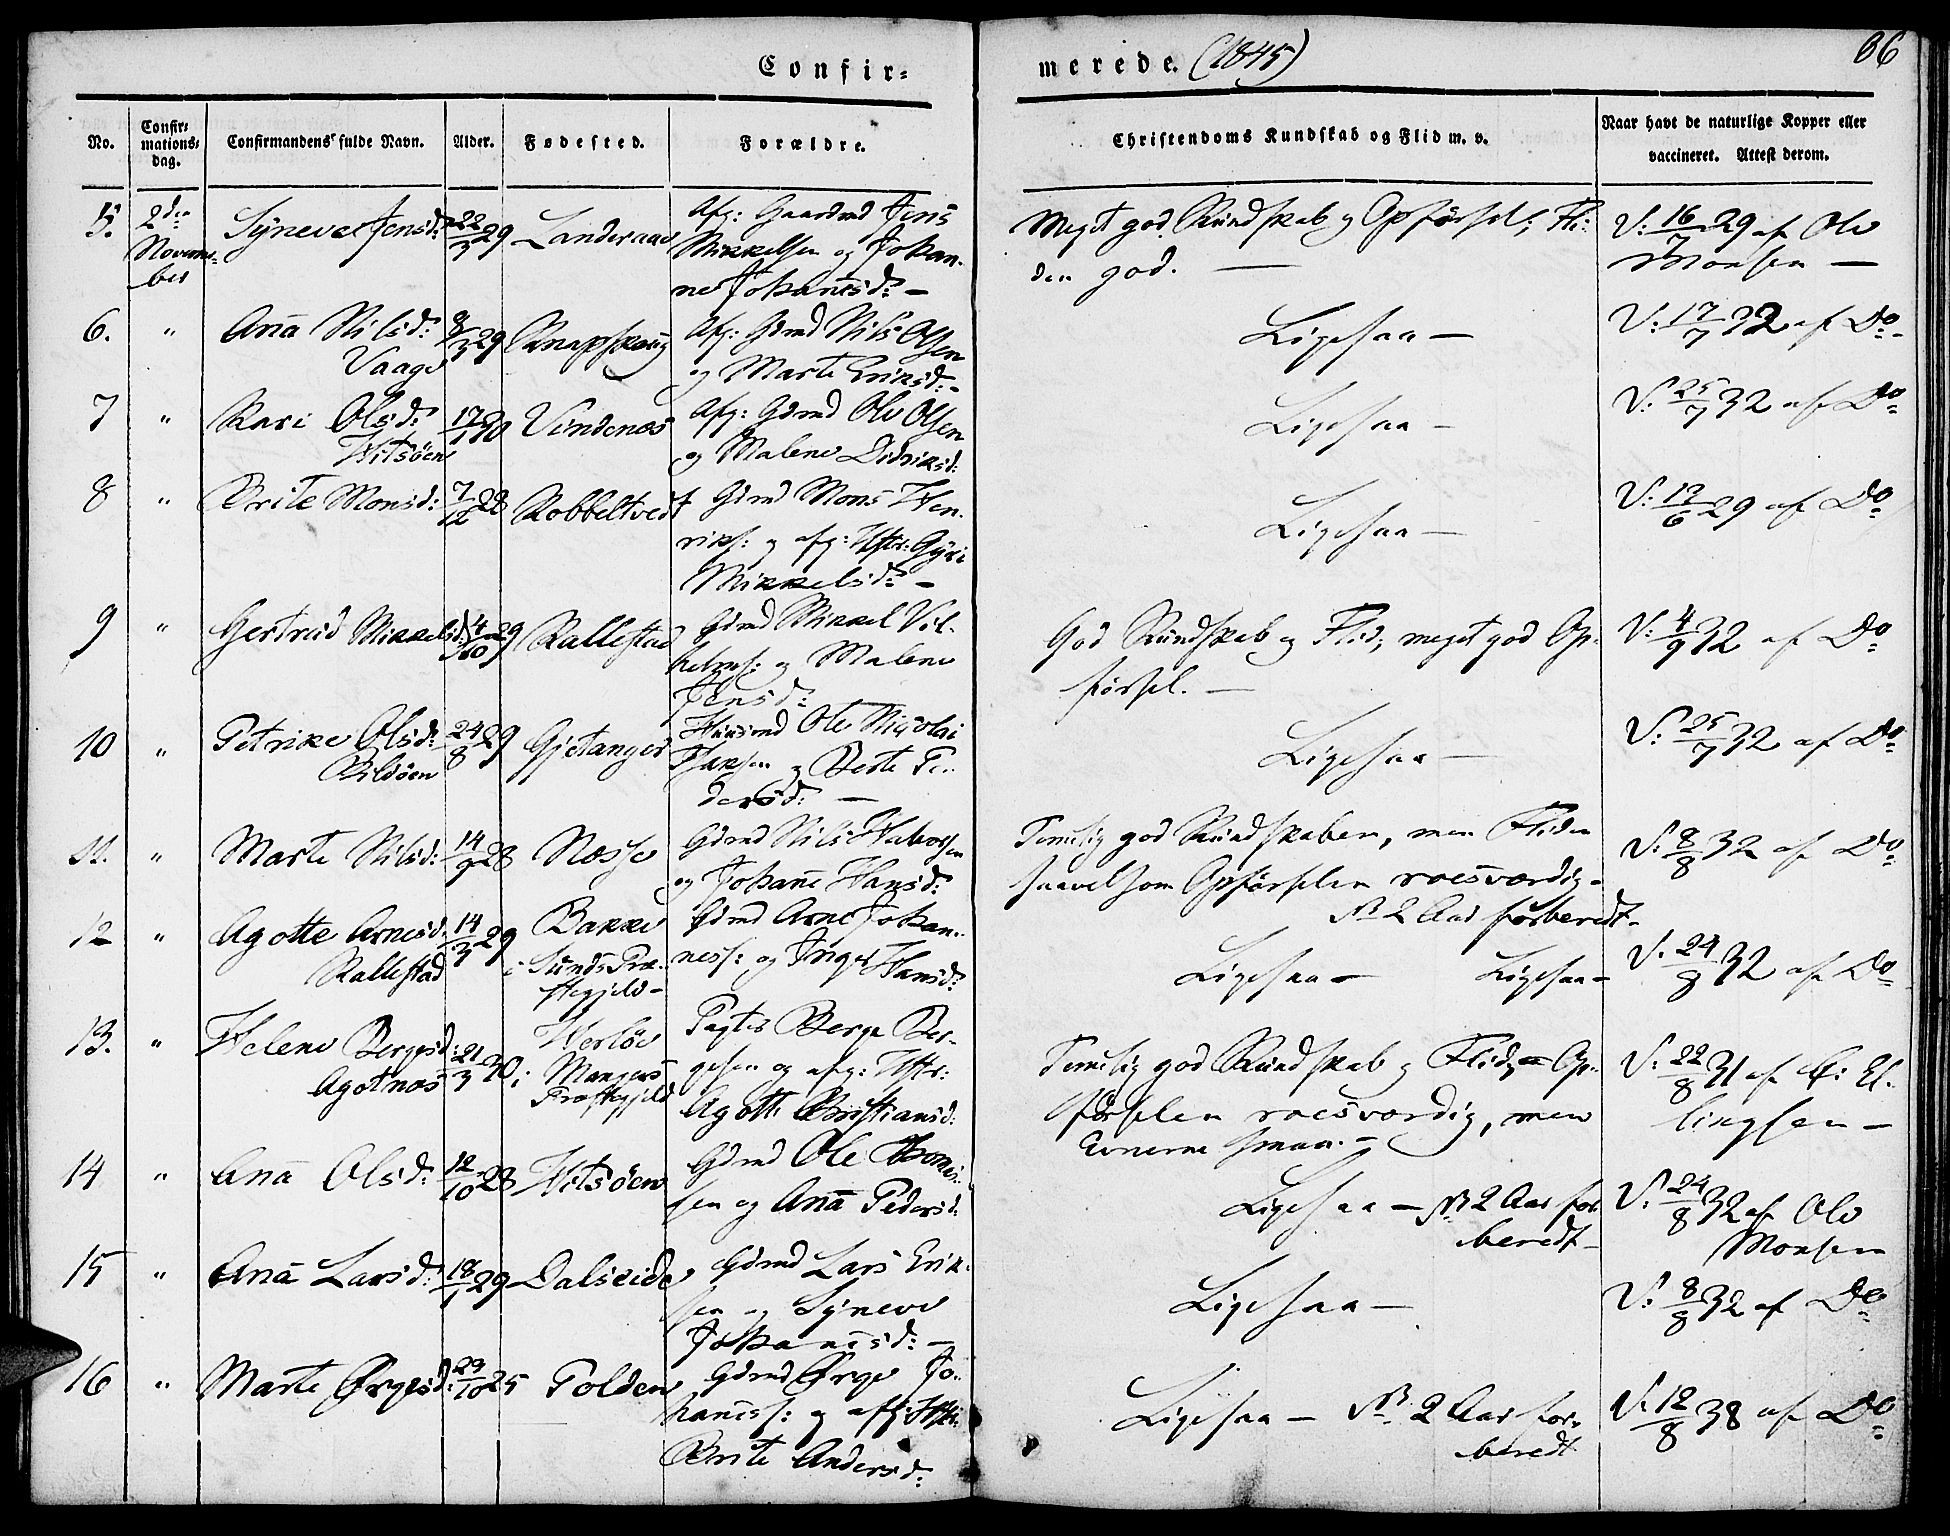 Confir-
merede. (1845)
66
No.
Confir-
mations-
dag.
Confirmandens fulde Navn.
Alder.
Fødested.
Forældre.
Christendoms Kundskab og Flid m. v.
Naar havt de naturlige Kopper eller
vaccineret. Attest derom.
5.
2den
Novem-
ber
Syneve Jensd:
22/3 29
Landeraae
Afg: Gaardmd Jens
Mikkelsen og Johan-
ne Johannesd: —
Meget god Kundskab og Opførsel; Fli-
den god. —
V: 16/7 29 af Ole
Monsen —
6.
"
Anna Nilsd:
Vaage
9/3 29
Knapskoug
Afg: Gdmd Nils Olsen
og Marte Eriksd: -
Ligesaa —
V: 17/7 32 af Do -
7
"
Kari Olsd:
Hitsøen
17/1 30
Vindenæs
Afg: Gdmd Ole Olsen
og Malene Didriksd:
Ligesaa —
V: 25/7 32 af Do
8
"
Brite Monsd:
7/12 28
Kobbeltvedt
Gdmd Mons Hen-
riks: og afg: Hstr: Gyri
Mikkelsd: —
Ligesaa —
V: 17/6 29 af Do
9
"
Gertrud Mikkelsd:
4/10 29
Kallestad
Gdmd Mikkel Vil-
helms: og Malene
Jensd:
God Kundskab og Flid; meget god Op-
førsel. —
V: 4/9 32 af Do
10
"
Petrike Olsd:
Bildøen
24/8 29
Gjetanger
Huusmd Ole Nicolai
Hansen og Berte Pe-
dersd: —
Ligesaa —
V: 25/7 32 af Do
11.
"
Marte Nilsd:
14/9 28
Næsse
Gdmd Nils
og Johanne Hansd:
Temelig god Kundskaben, men Fliden
saavelsom Opførselen roesværdig -
NB 2 Aar forberedt -
V: 8/8 32 af Do
12
"
Agotte Arnesd:
Kallestad
14/3 29
Bakke
i Sunds Præ-
stegjeld -
Gdmd Arne Johan-
ness: og Inger Hansd:
Ligesaa — Ligesaa —
V: 24/8 32 af Do
13.
"
Helene Bergesd:
Agotnæs
21/3 30
Herløe
i Mangers
Præstegjeld
Pagter Berge Ber-
gesen og afg: Hstr:
Agotte Christiansd:
Temelig god Kundskab og Flid, Op-
førselen roesværdig, men
Evnerne smaa. —
V: 22/8 31 af E: El-
lingsen —
14
"
Anna Olsd:
12/10 28
Hitsøen
Gdmd Ole
sen og Anna Pedersd:
Ligesaa — NB 2 Aar for-
beredt -
V: 24/8 32 af Ole
Monsen
15
"
Anna Larsd:
18/1 29
Dalseide
Gdmd Lars Erik-
sen og Syneve
Johannesd: —
Ligesaa —
V: 8/8 32 af Do
16
"
Marte Ørgesd:
23/10 25
Tolden
Gdmd Ørge Jo-
hanness: og afg: Hstr:
Brite Andersd:
Ligesaa — NB 2 Aar for-
beredt
V: 12/8 38 af Do